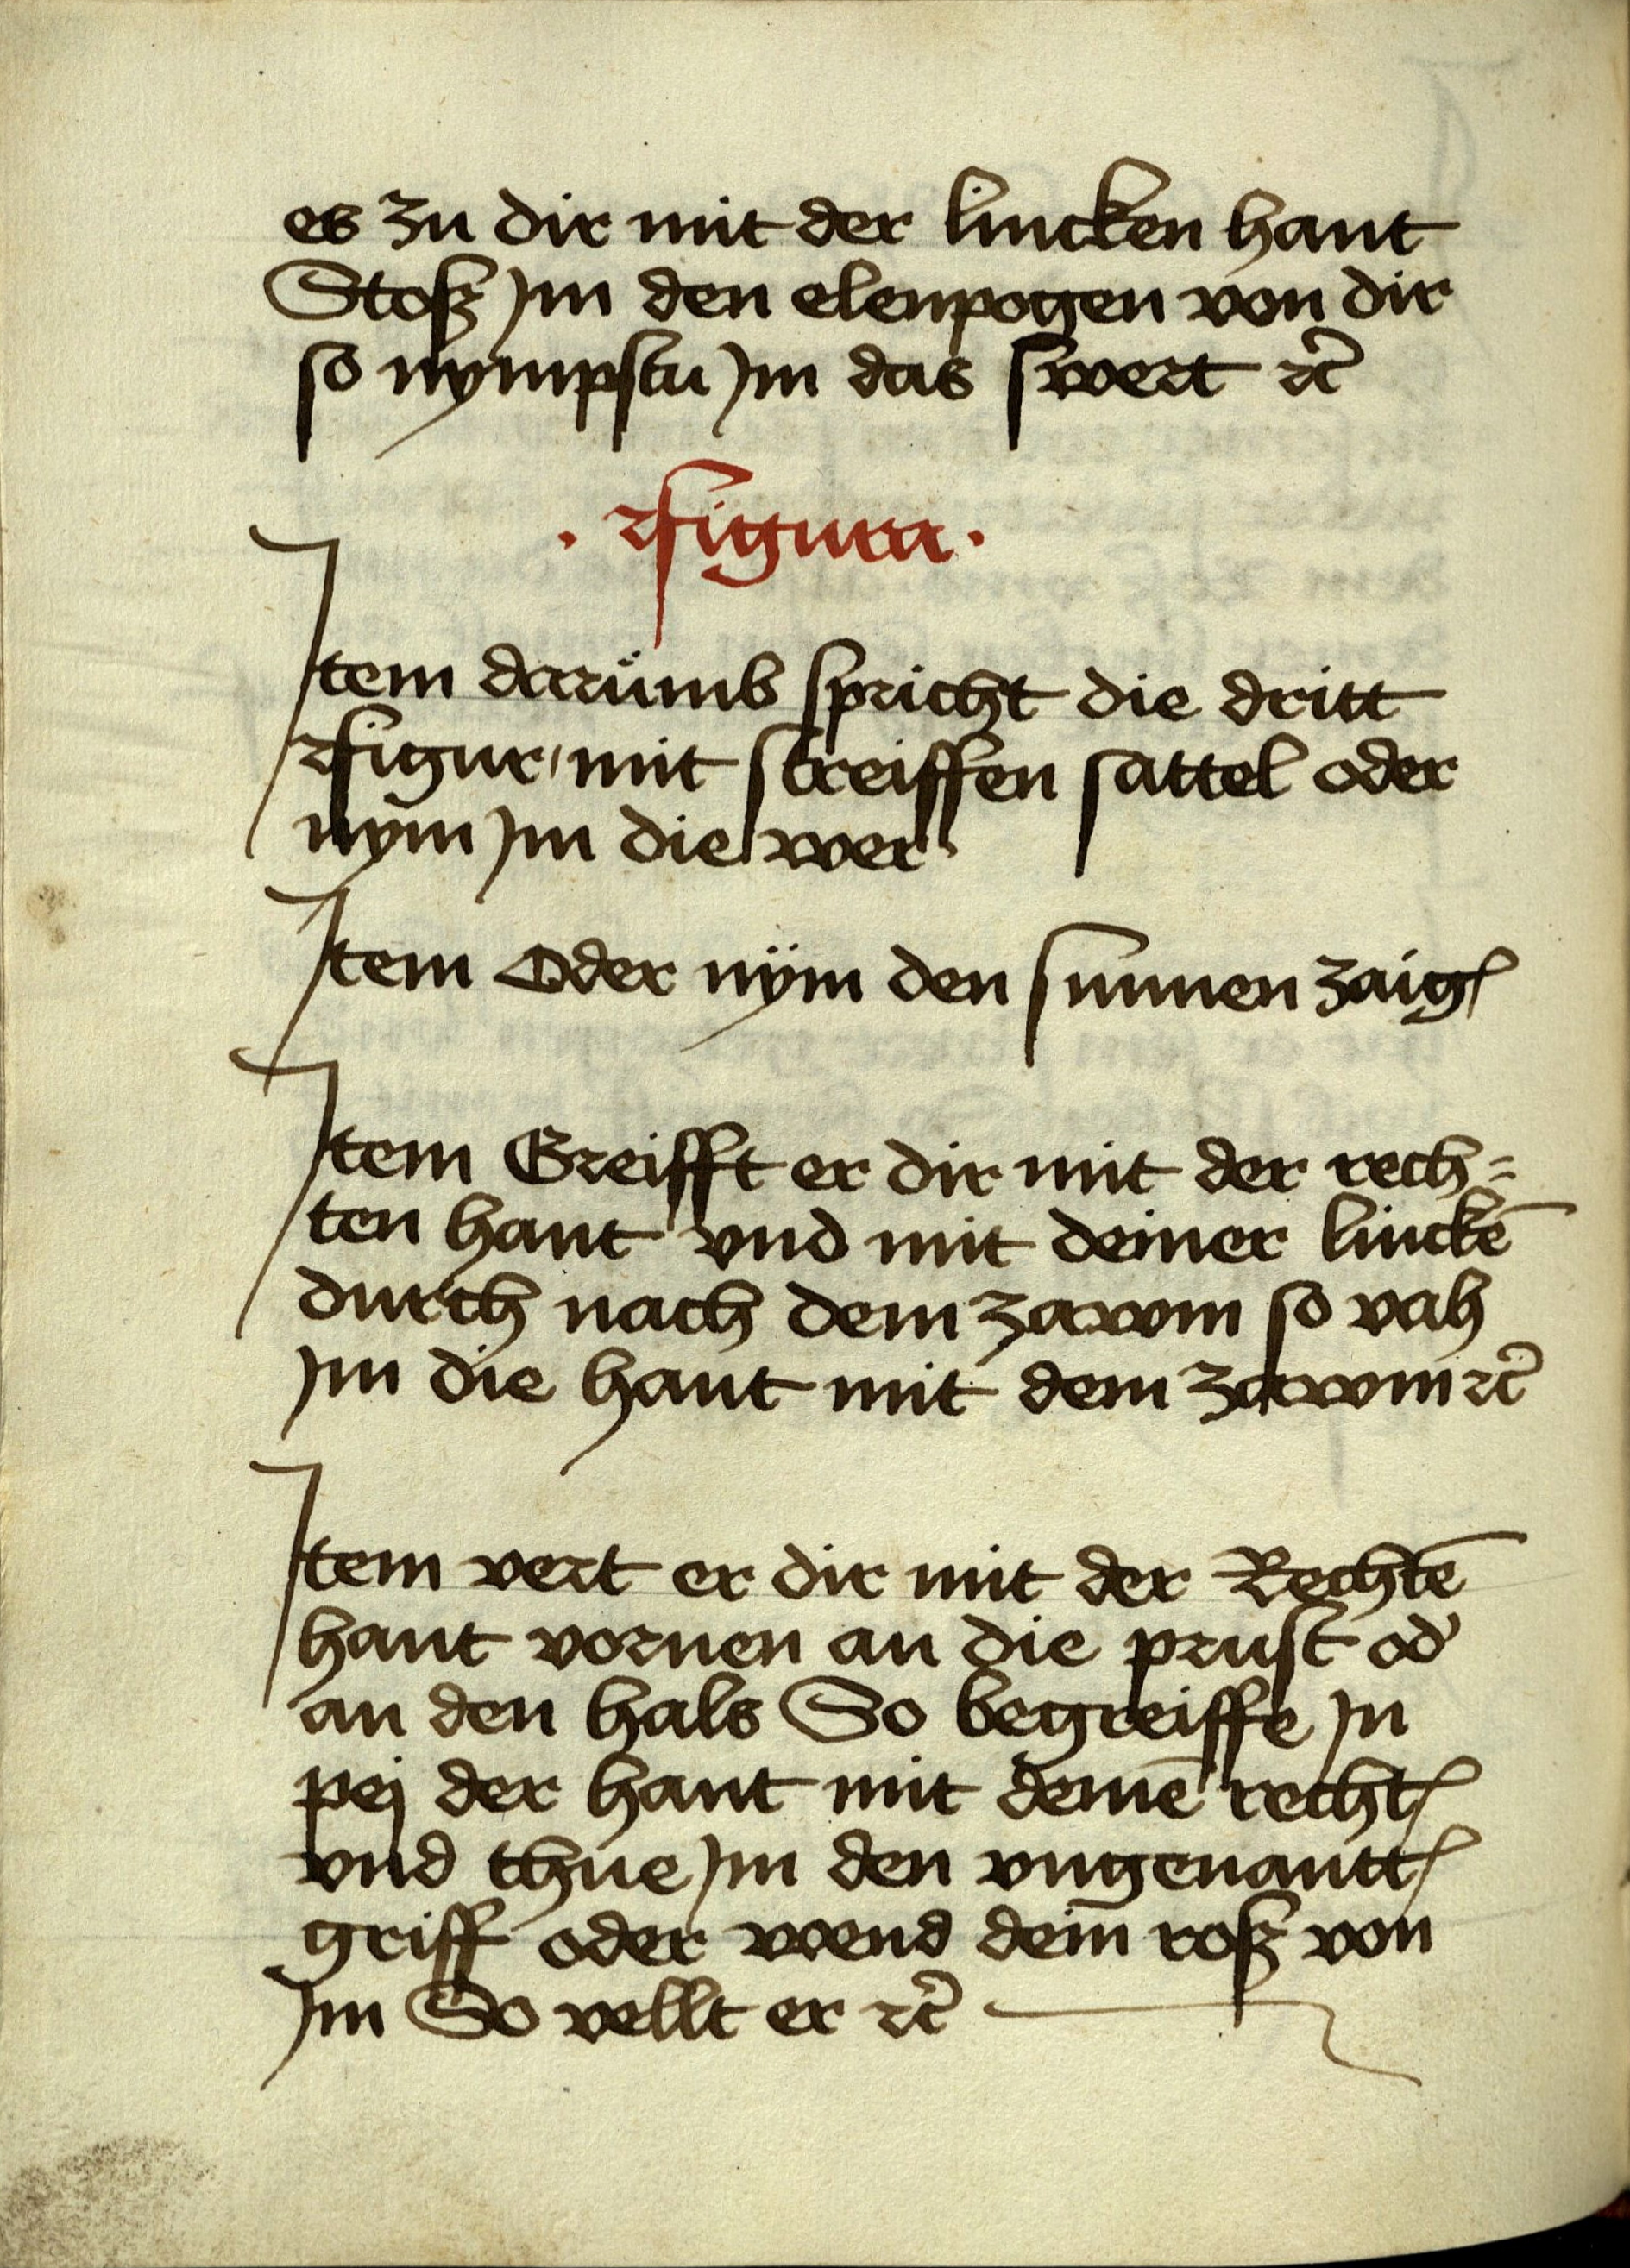 es zu dir mit der lincken hant
Stoß Jm den elenpogen von dir
so nympstu Jm das swert ꝛc̃
· Figura ·
Jtem darümb spricht die dritt
Figur / mit streiffen sattel oder
nym Jm die wer
Jtem Oder nÿm den sunnen zaigꝭ
Jtem Greifft er dir mit der rech=
ten hant vnd mit deiner linckē
durch nach dem zawm so vah
Jm die hant mit dem zawm ꝛc̃
Jtem vert er dir mit der Rechtē
hant vornen an die prust od’
an den hals So begreiffe Jn
pej der hant mit deinē rechtꝭ
vnd thue Jm den vngenanttꝭ
griff oder wend dein̄ roß von
Jm So vellt er ꝛc̃